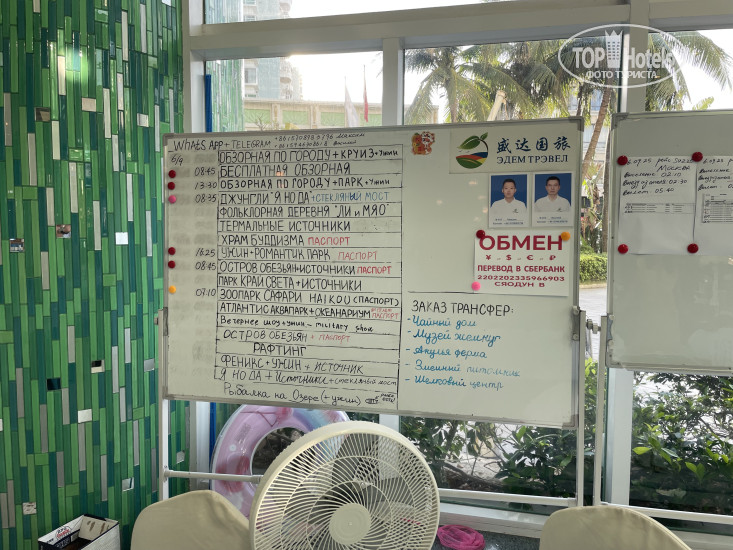 TOPHotels
ФОТО ТУРИСТА
WHATS APP + TELEGRAM
6/4
ОБЗОРНАЯ ПО ГОРОДУ + КРУИЗ + УЖИН
08:45 БЕСПЛАТНАЯ ОБЗОРНАЯ
13:30 ОБЗОРНАЯ ПО ГОРОДУ + ПАРК + УЖИН
08:35 ДЖУНГЛИ "Я НО ДА" + СТЕКЛЯНЫЙ МОСТ
ФОЛЬКЛОРНАЯ ДЕРЕВНЯ "ЛИ и МЯО"
ТЕРМАЛЬНЫЕ ИСТОЧНИКИ
ХРАМ БУДДИЗМА ПАСПОРТ
16:25 УЖИН + РОМАНТИК ПАРК ПАСПОРТ
08:45 ОСТРОВ ОБЕЗЬЯН + ИСТОЧНИКИ ПАСПОРТ
ПАРК КРАЙ СВЕТА + ИСТОЧНИКИ
07:10 ЗООПАРК САФАРИ HAIKOU (ПАСПОРТ)
АТЛАНТИС АКВАПАРК + ОКЕАНАРИУМ ПАСПОРТ
Вечернее шоу + ужин - military show
ОСТРОВ ОБЕЗЬЯН + ПАСПОРТ
РАФТИНГ
ФЕНИКС + УЖИН + ИСТОЧНИК
Я НО ДА + Источники + стекляный мост
Рыбалка на Озере (+ ужин)
盛达国旅
ЭДЕМ ТРЭВЕЛ
ОБМЕН
¥ - $ - € - ₽
ПЕРЕВОД В СБЕРБАНК
2202202335966903
СЯОДУН В
ЗАКАЗ ТРАНСФЕР:
- Чайный дом
- Музей жемчуг
- Акулья ферма
- Змеиный питомник
- Шелковый центр
Москва